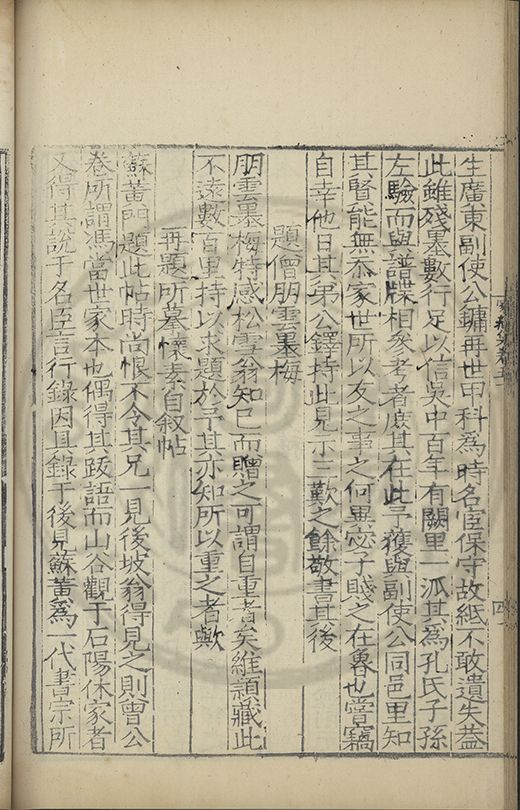 生廣東副使公鏞再世甲科為時名宦保守故紙不敢遺失蓋
此雖殘墨數行足以信吳中百年有闕里一派其為孔氏子孫
左驗而與譜牒相叅考者庶其在此予獲與副使公同邑里知
其賢能無忝家世所以友之事之何異宓子賤之在魯也嘗竊
自幸他日其弟公鐸持此見示三歎之餘敬書其後
題僧朋雲墨梅
朋雲墨梅特感松雪翁知已而贈之可謂自重者矣維顒藏此
不遠數百里持以求題於予其亦知所以重之者歟
再題所摹懷素自叙帖
蘇黃門題此帖時尚恨不令其兄一見後坡翁得見之則曾公
卷所謂馮當世家本也偶得其跋語而山谷觀于石陽休家者
又得其說于名臣言行錄因具錄于後見蘇黃為一代書宗所